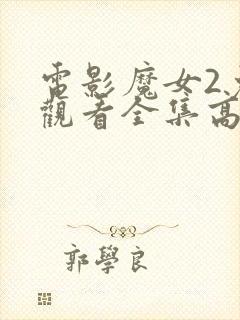 電影魔女2
觀看全集高
郭學良